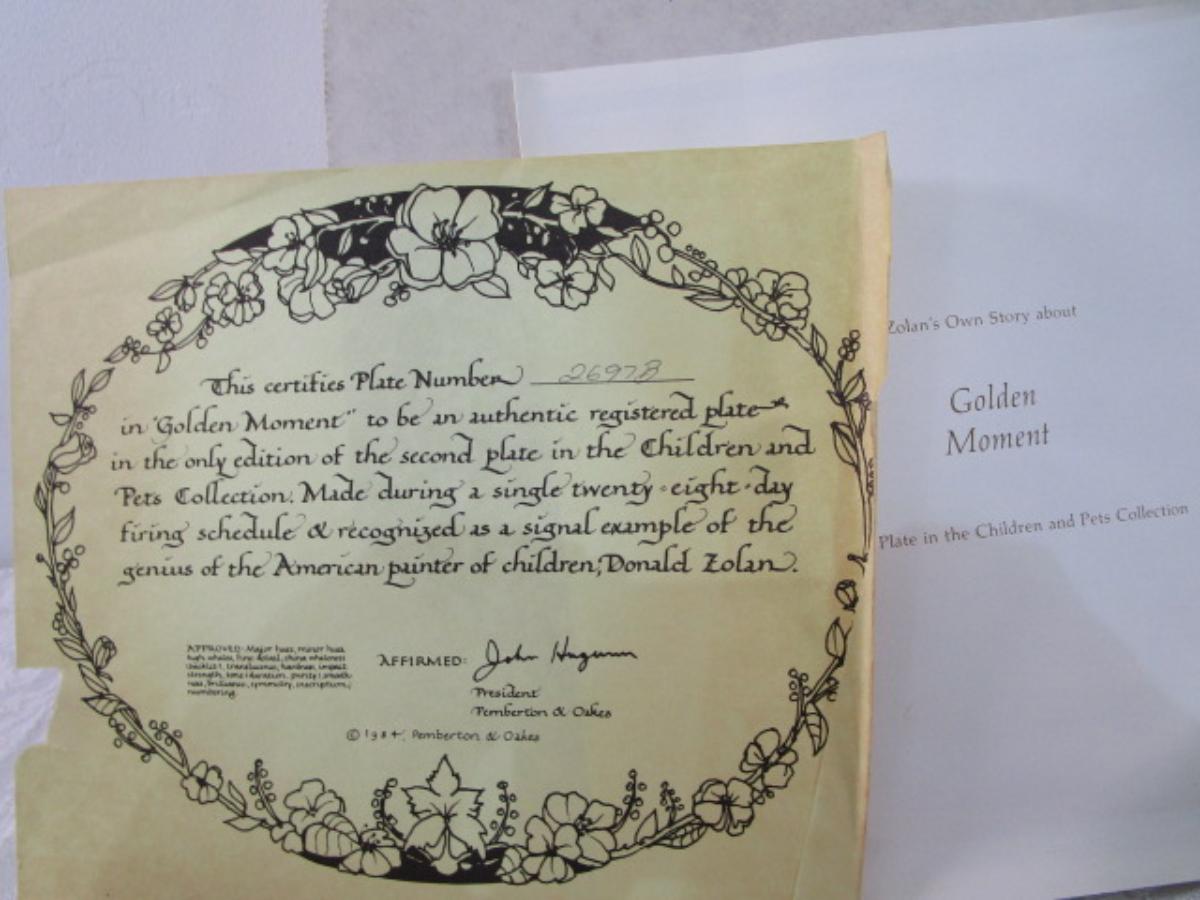 This certifies Plate Number 2697B
in "Golden Moment" to be an authentic registered plate
in the only edition of the second plate in the Children and
Pets Collection. Made during a single twenty-eight-day
firing schedule & recognized as a signal example of the
genius of the American painter of children, Donald Zolan.
APPROVED: Major hues, minor hues
high whites, fine detail, china whiteness
translucence, hardness, impact
strength, tone duration, purity, smooth-
ness, brilliance, symmetry, inscription,
numbering.
AFFIRMED: John Hugunin
President
Pemberton & Oakes
© 1984, Pemberton & Oakes
Zolan's Own Story about
Golden
Moment
Plate in the Children and Pets Collection